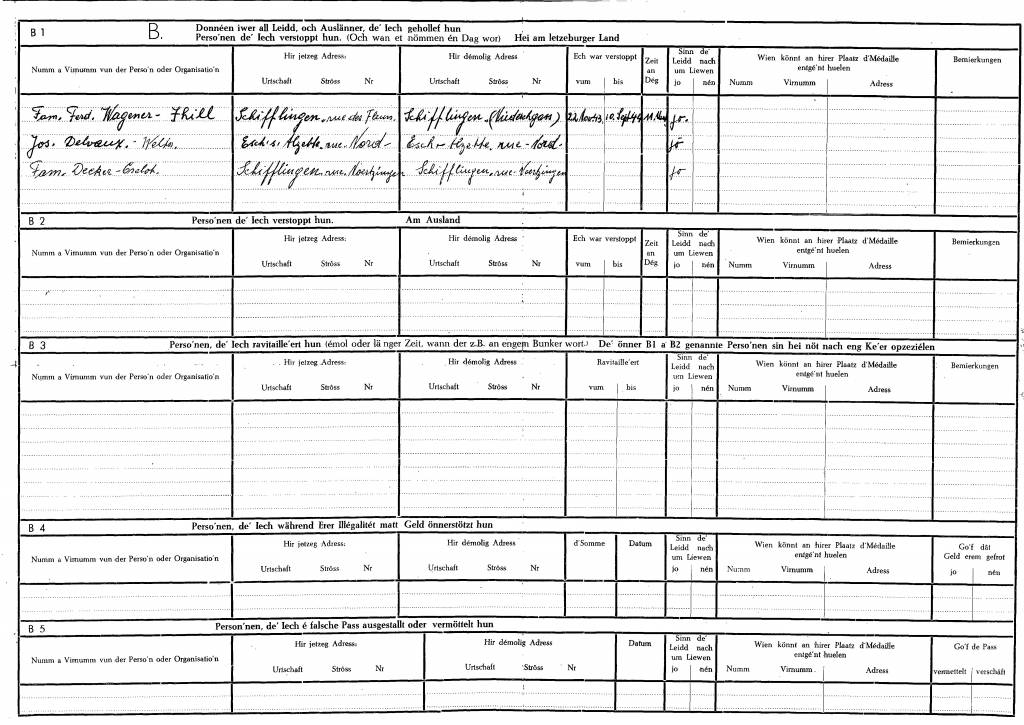 B 1 B. Donnéen iwer all Leidd, och Auslänner, de' Iech gehollef hun
Perso'nen de' Iech verstoppt hun. (Och wan et nömmen én Dag wor) Hei am letzeburger Land
Numm a Virnumm vun der Perso'n oder Organisatio'n Hir jetzeg Adress: Hir démolig Adress Ech war verstoppt Zeit an Dég Sinn de' Leidd nach um Liewen Wien könnt an hirer Plaatz d'Médaille entgé'nt huelen Bemierkungen
Urtschaft Ströss Nr Urtschaft Ströss Nr vum bis jo nén Numm Virnumm Adress
Fam. Ferd. Wagener - Thill Schifflingen, rue des Fleurs. Schifflingen. (Niederchgan) 22. Nov 43 10. Sept 44 jo.
Jos. Delvaux. - Welter. Esch s. Alzette. rue. Nord - Esch - Alzette. rue - Nord. jo
Fam. Decker - Schifflingen. rue. Noertzingen Schifflingen. rue. Noertzingen jo
B 2 Perso'nen de' Iech verstoppt hun. Am Ausland
Numm a Virnumm vun der Perso'n oder Organisatio'n Hir jetzeg Adress: Hir démolig Adress Ech war verstoppt Zeit an Dég Sinn de' Leidd nach um Liewen Wien könnt an hirer Plaatz d'Médaille entgé'nt huelen Bemierkungen
Urtschaft Ströss Nr Urtschaft Ströss Nr vum bis jo nén Numm Virnumm Adress
B 3 Perso'nen, de' Iech ravitaille'ert hun (émol oder länger Zeit, wann der z.B. an engem Bunker wort.) De' önner B1 a B2 genannte Perso'nen sin hei nöt nach eng Ke'er opzeziélen
Numm a Virnumm vun der Perso'n oder Organisatio'n Hir jetzeg Adress: Hir démolig Adress Ravitaille'ert Sinn de' Leidd nach um Liewen Wien könnt an hirer Plaatz d'Médaille entgé'nt huelen Bemierkungen
Urtschaft Ströss Nr Urtschaft Ströss Nr vum bis jo nén Numm Virnumm Adress
B 4 Perso'nen, de' Iech während Erer Illégalitét matt Geld önnerstötzt hun
Numm a Virnumm vun der Perso'n oder Organisatio'n Hir jetzeg Adress: Hir démolig Adress d'Somme Datum Sinn de' Leidd nach um Liewen Wien könnt an hirer Plaatz d'Médaille entgé'nt huelen Go'f dât Geld erem gefrot
Urtschaft Ströss Nr Urtschaft Ströss Nr jo nén Numm Virnumm Adress jo nén
B 5 Person'nen, de' Iech é falsche Pass ausgestallt oder vermöttelt hun
Numm a Virnumm vun der Perso'n oder Organisatio'n Hir jetzeg Adress: Hir démolig Adress Datum Sinn de' Leidd nach um Liewen Wien könnt an hirer Plaatz d'Médaille entgé'nt huelen Go'f de Pass
Urtschaft Ströss Nr Urtschaft Ströss Nr jo nén Numm Virnumm Adress vermettelt verschäft